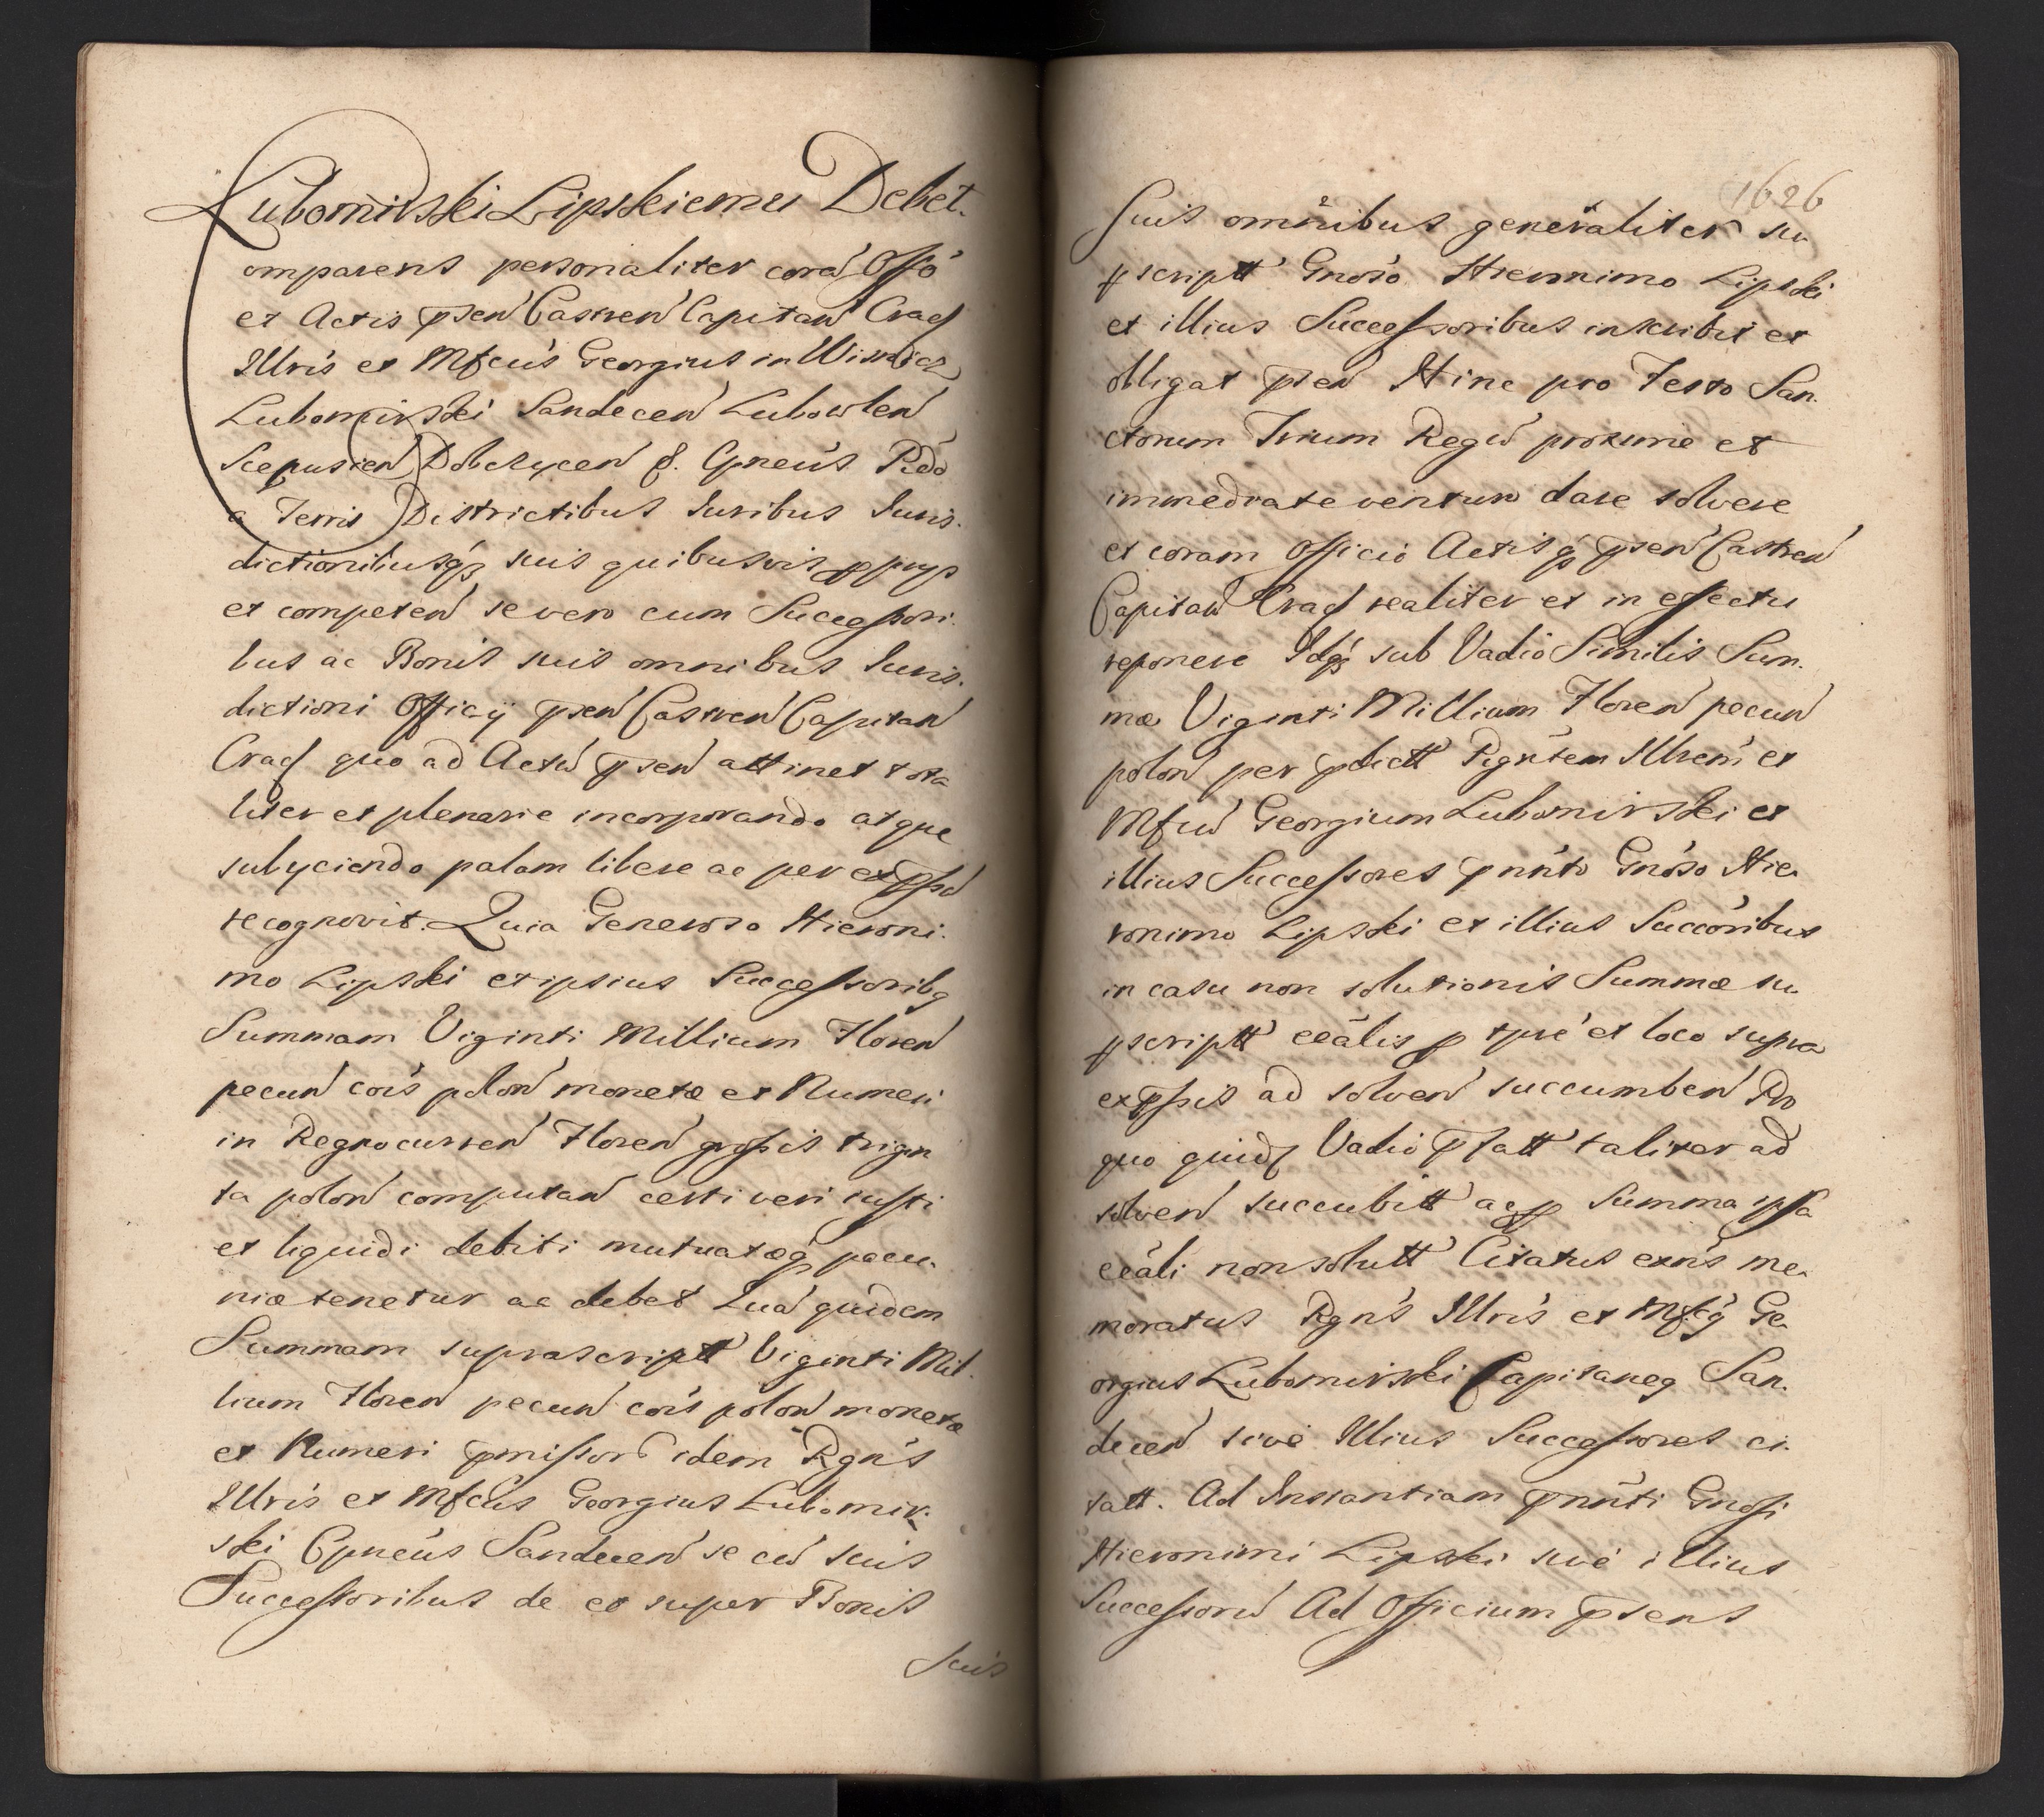 Lubomirski Lipskiemu Debet.
omparens personaliter corã Offõ
et Actis pñsen Castren Capitan Crac
Illris et Mfcus Georgius in Wisnicz
Lubomirski Sandecen Lubowlen
Scepusien Dobczycen &. Cpneus
a Terris Districtibus Iuribus Iuris.
dictionibusq3 suis quibusvis pprys
et competen se vero cum Successori.
bus ac Bonis suis omnibus Iuris.
dictioni Officÿ pñsen Castren Capitan
Crac quo ad Actũ pñsen attinet tota
liter et plenarie incorporando atque
subyciendo palam libere ac per expssũ
recognovit. Quia Generoso Hieroni.
mo Lipski et ipsius Successorib9
Summam Viginti Millium Floren
pecun cõis polon monetæ et Numeri
in Regno curren Floren grossis trigin
ta polon computan certi veri iusti
et liquidi debiti mutuatæq3 pecu.
niæ tenetur ac debet Quã quidem
Summam suprascriptt Viginti Mil.
lium Floren pecun cõis polon monetæ
et Numeri pmissorũ idem Rgn's
Illris et Mfcus Georgius Lubomir.
ski Cpneus Sandecen se cũ suis
Successoribus de et super Bonis
suis
1626
Suis omnibus generaliter su
pscriptt Gnoso Hieronimo Lipski
et illius Successoribus inscribit et
obligat pñsen Hinc pro Festo San.
ctorum Trium Regũ proxime et
immediate venturo dare solvere
et coram Officio Actisq3 pñsen Castren
Capitan Crac realiter et in effectu
reponere Idq3 sub Vadio Similis Sum.
mæ Viginti Millium Floren pecun
polon per pdictt Rgñtem Illrem et
Mfcũ Georgium Lubomirski et
illius Successores pnnto Gnoso Hie.
ronimo Lipski et illius Succoribus
in casu non solutionis Summæ su
pscriptt cealis p tpre et loco supra
expssis ad solven succumben Pro
quo quid Vadio pfatt taliter ad
solven succubitt ac p Summa ipsa
ceali non solutt Citatus exn's me.
moratus Rgn's Illris et Mfc9 Ge
orgius Lubomirski Capitane9 San.
decen sive Illius Successores ci.
tatt. Ad Instantiam pnnti Gnosi
Hieronimi Lipski sive illius
Successorũ Ad Officium pñsens